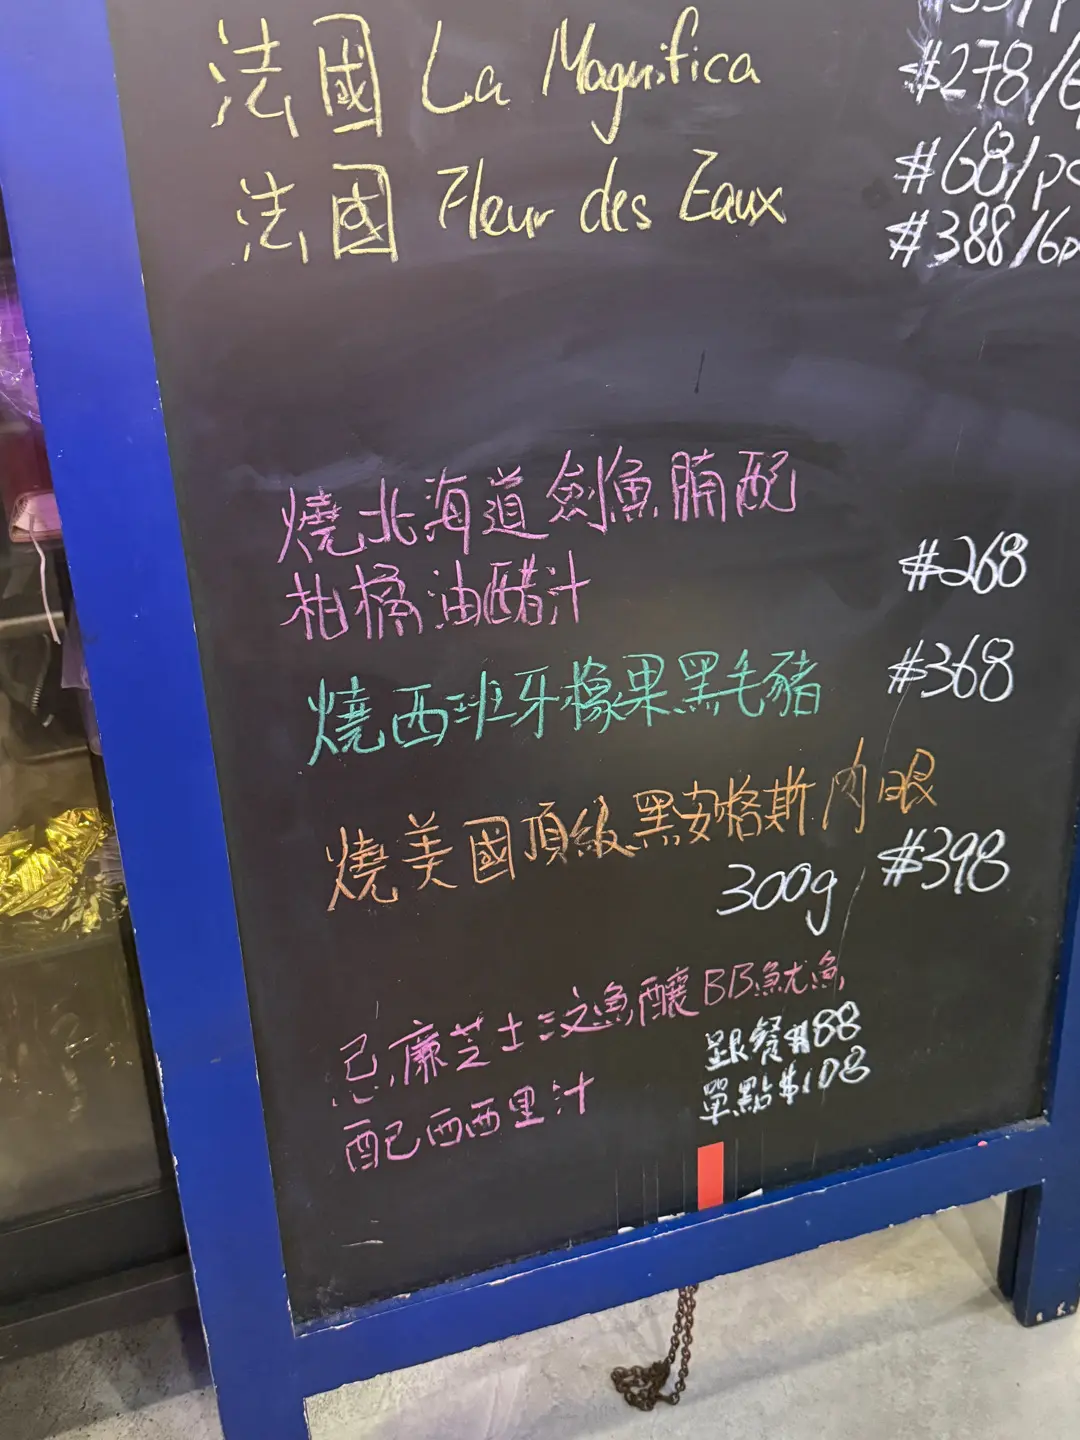 法國 La Magnifica
$278/6
法國 Fleur des Eaux
$68/pc
$388/6p
燒北海道劍魚腩配
柑橘油醋汁 $268
燒西班牙橡果黑毛豬 $368
燒美國頂級黑安格斯肉眼
300g $398
忌廉芝士三文魚釀BB魷魚
跟餐$88
配西西里汁
單點$108